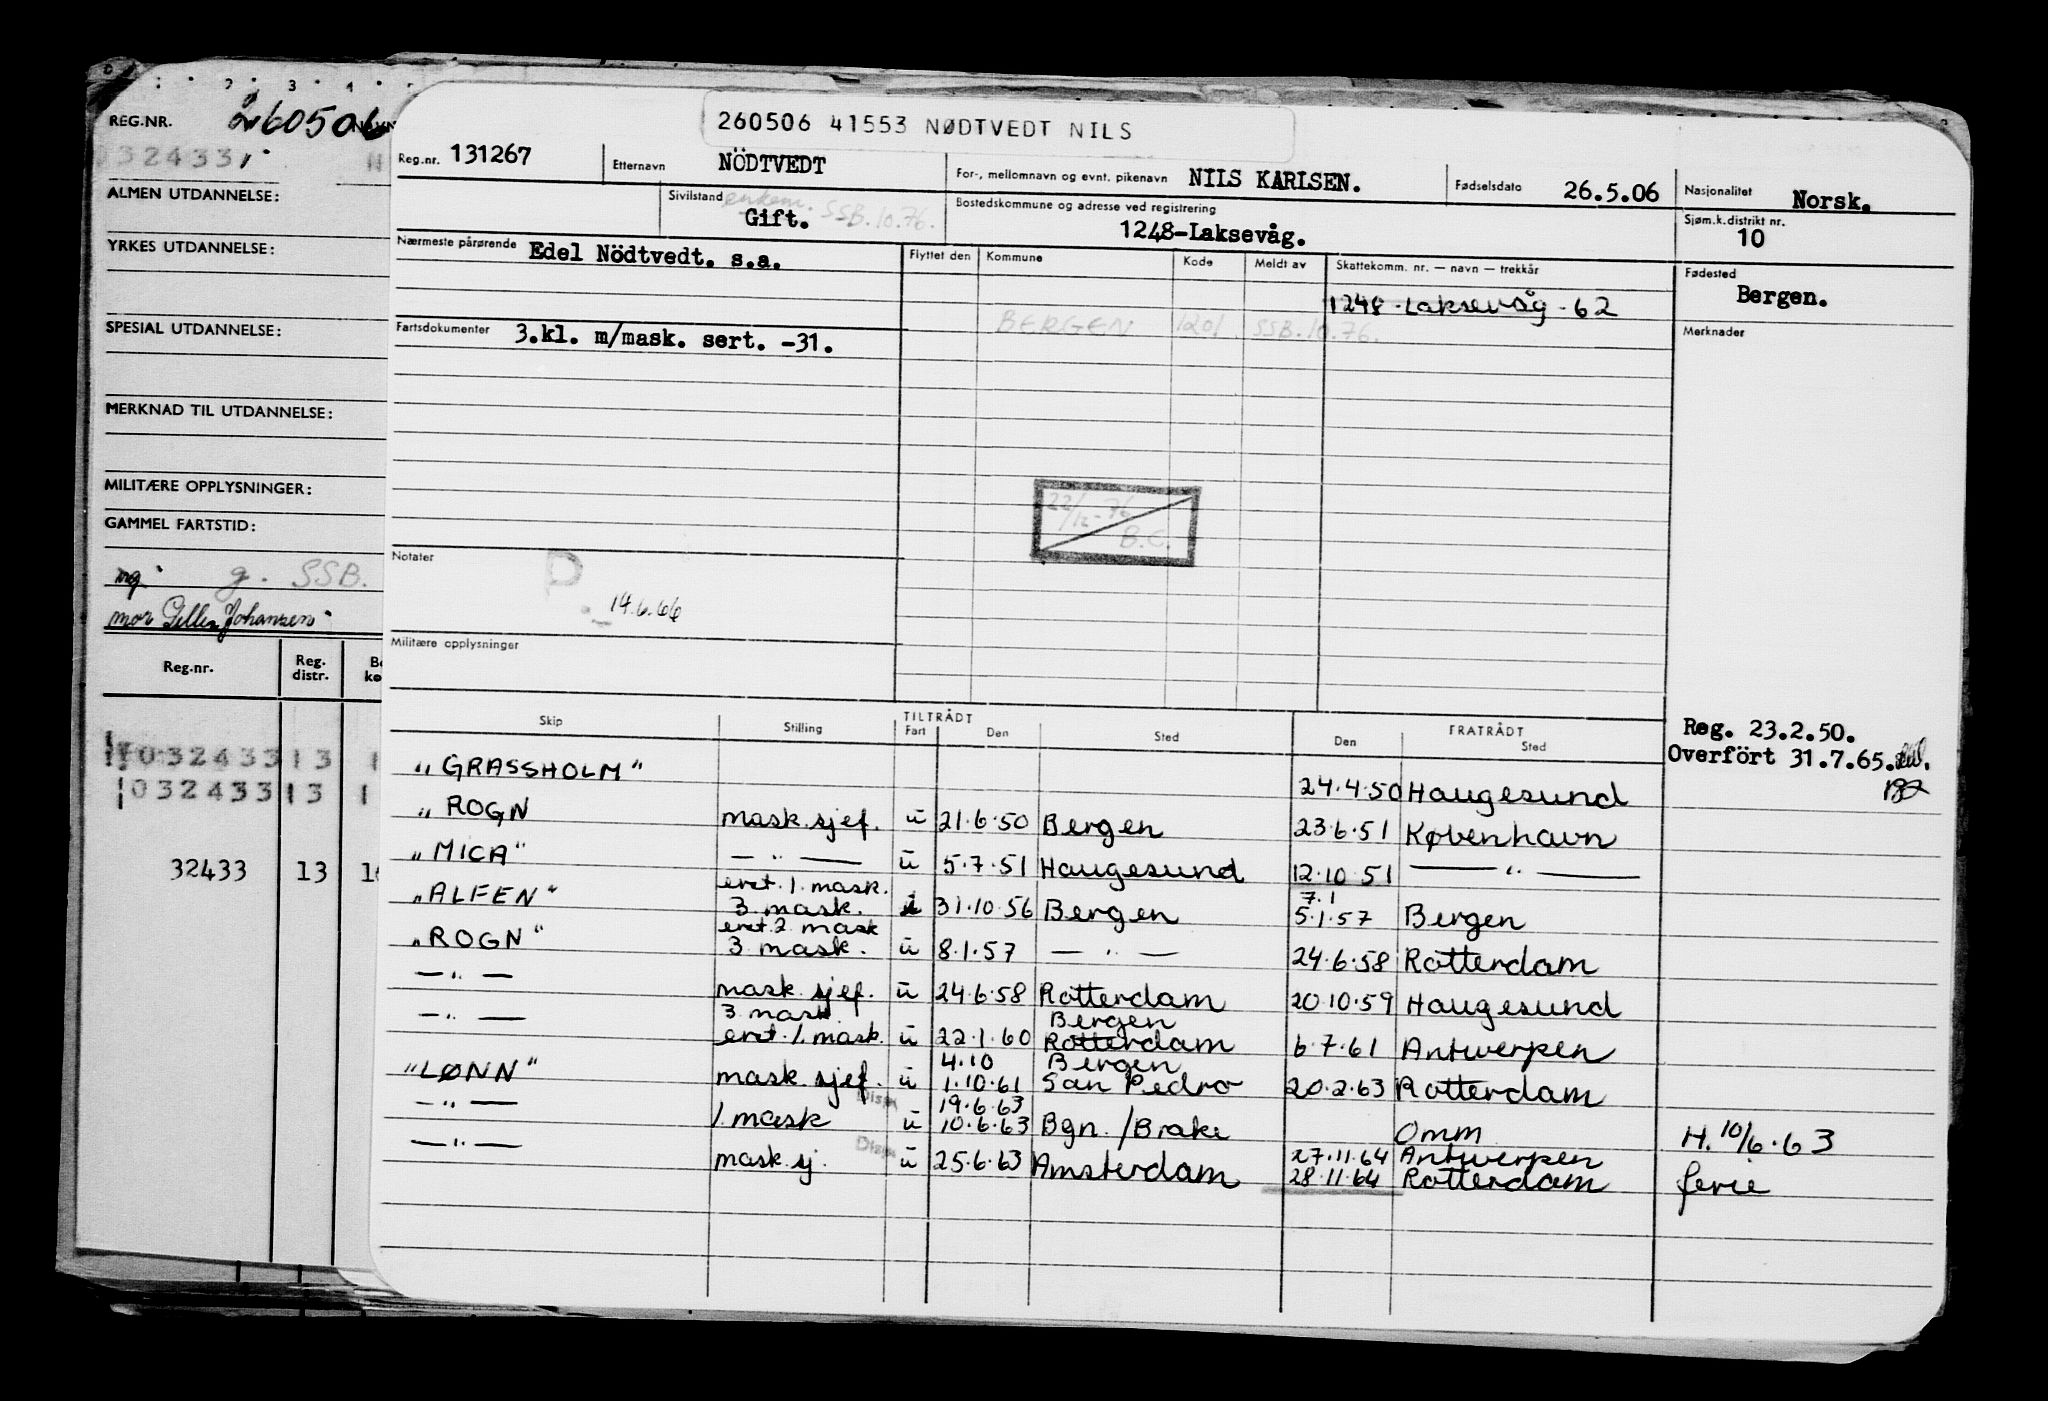 REG.NR. 260506
032433
ALMEN UTDANNELSE:
YRKES UTDANNELSE:
SPESIAL UTDANNELSE:
MERKNAD TIL UTDANNELSE:
MILITÆRE OPPLYSNINGER:
GAMMEL FARTSTID:
g. SSB.
mor Johansen
Reg.nr. Reg. distr.
032433 13 1
032433 13 1
32433 13
260506 41553 NØDTVEDT NILS
Reg.nr. 131267 Etternavn NÖDTVEDT For-, mellomnavn og evnt. pikenavn NILS KARLSEN. Fødselsdato 26.5.06 Nasjonalitet Norsk.
Sivilstand Gift. enkem. SSB.10.76. Bostedskommune og adresse ved registrering 1248-Laksevåg. Sjøm.k.distrikt nr. 10
Nærmeste pårørende Edel Nödtvedt. s.a. Flyttet den Kommune Kode Meldt av Skattekomm. nr. — navn — trekkår Fødested Bergen.
1248 - Laksevåg - 62
BERGEN 1201 SSB.10.76.
Fartsdokumenter 3.kl. m/mask. sert. -31. Merknader
22/12-76
B.C.
Notater
P.
14.6.66
Militære opplysninger
Reg. 23.2.50.
Overfört 31.7.65.
Skip Stilling TILTRÅDT Fart Den Sted FRATRÅDT Den Sted
"GRASSHOLM" 24.4.50 Haugesund
"ROGN mask.sjef. u 21.6.50 Bergen 23.6.51 København
"MICA" — " — u 5.7.51 Haugesund 12.10.51 — " —
eret. 1. mask. 7.1
"ALFEN" 3 mask. 31.10.56 Bergen 5.1.57 Bergen
eret. 2 mask
"ROGN" 3 mask. u 8.1.57 — " — 24.6.58 Rotterdam
— " — mask.sjef. u 24.6.58 Rotterdam 20.10.59 Haugesund
3 mask. Bergen
— " — eret. 1. mask. u 22.1.60 Rotterdam 6.7.61 Antwerpen
4.10 Bergen
"LØNN" mask.sjef. u 1.10.61 San Pedro 20.2.63 Rotterdam
Dism 19.6.63
— " — 1. mask u 10.6.63 Bgn. /Brake Omm H. 10/6.63
Dism 27.11.64 Antwerpen
— " — mask.sj. u 25.6.63 Amsterdam 28.11.64 Rotterdam ferie